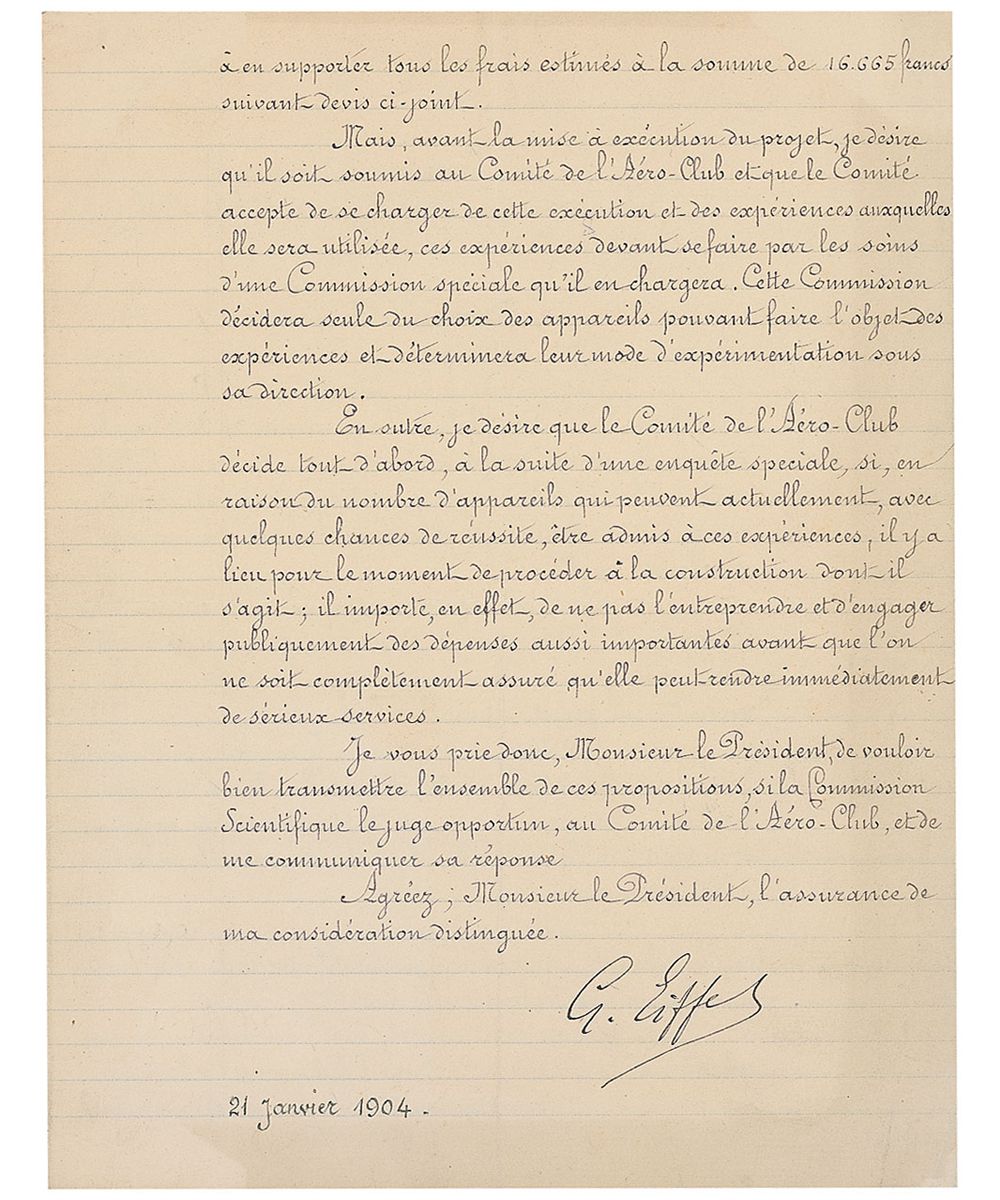 à en supporter tous les frais estimés à la somme de 16.665 francs
suivant devis ci-joint.
Mais, avant la mise à exécution du projet, je désire
qu'il soit soumis au Comité de l'Aéro-Club et que le Comité
accepte de se charger de cette exécution et des expériences auxquelles
elle sera utilisée, ces expériences devant se faire par les soins
d'une Commission spéciale qu'il en chargera. Cette Commission
décidera seule du choix des appareils pouvant faire l'objet des
expériences et déterminera leur mode d'expérimentation sous
sa direction.
En outre, je désire que le Comité de l'Aéro-Club
décide tout d'abord, à la suite d'une enquête speciale, si, en
raison du nombre d'appareils qui peuvent actuellement, avec
quelques chances de réussite, être admis à ces expériences, il y a
lieu pour le moment de procéder à la construction dont il
s'agit; il importe, en effet, de ne pas l'entreprendre et d'engager
publiquement des dépenses aussi importantes avant que l'on
ne soit complètement assuré qu'elle peut rendre immédiatement
de sérieux services.
Je vous prie donc, Monsieur le Président, de vouloir
bien transmettre l'ensemble de ces propositions, si la Commission
Scientifique le juge opportun, au Comité de l'Aéro-Club, et de
me communiquer sa réponse
Agréez; Monsieur le Président, l'assurance de
ma considération distinguée.
G. Eiffel
21 Janvier 1904.